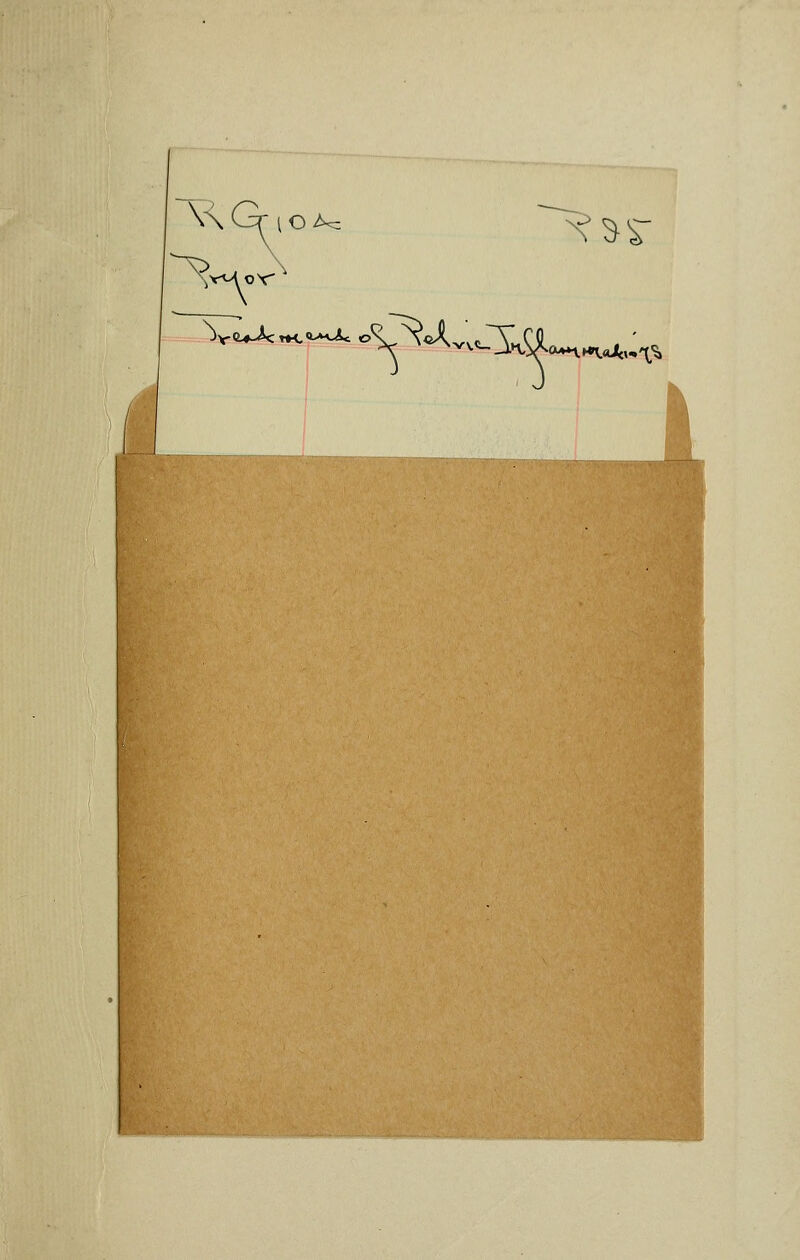 RG104 P95
Pryor
Treatment of Pelvic Inflammations